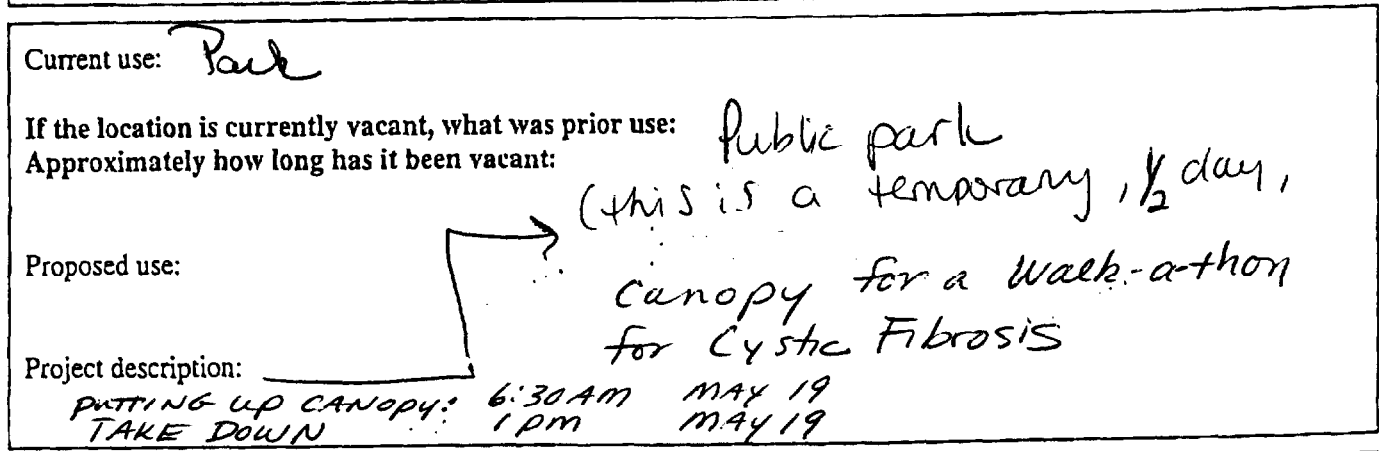 Current use: Park
If the location is currently vacant, what was prior use: Public park
Approximately how long has it been vacant:
(this is a temporary, 1/2 day,
Proposed use:
canopy for a Walk-a-thon
for Cystic Fibrosis
Project description:
PUTTING UP CANOPY: 6:30 AM MAY 19
TAKE DOWN 1 PM MAY 19